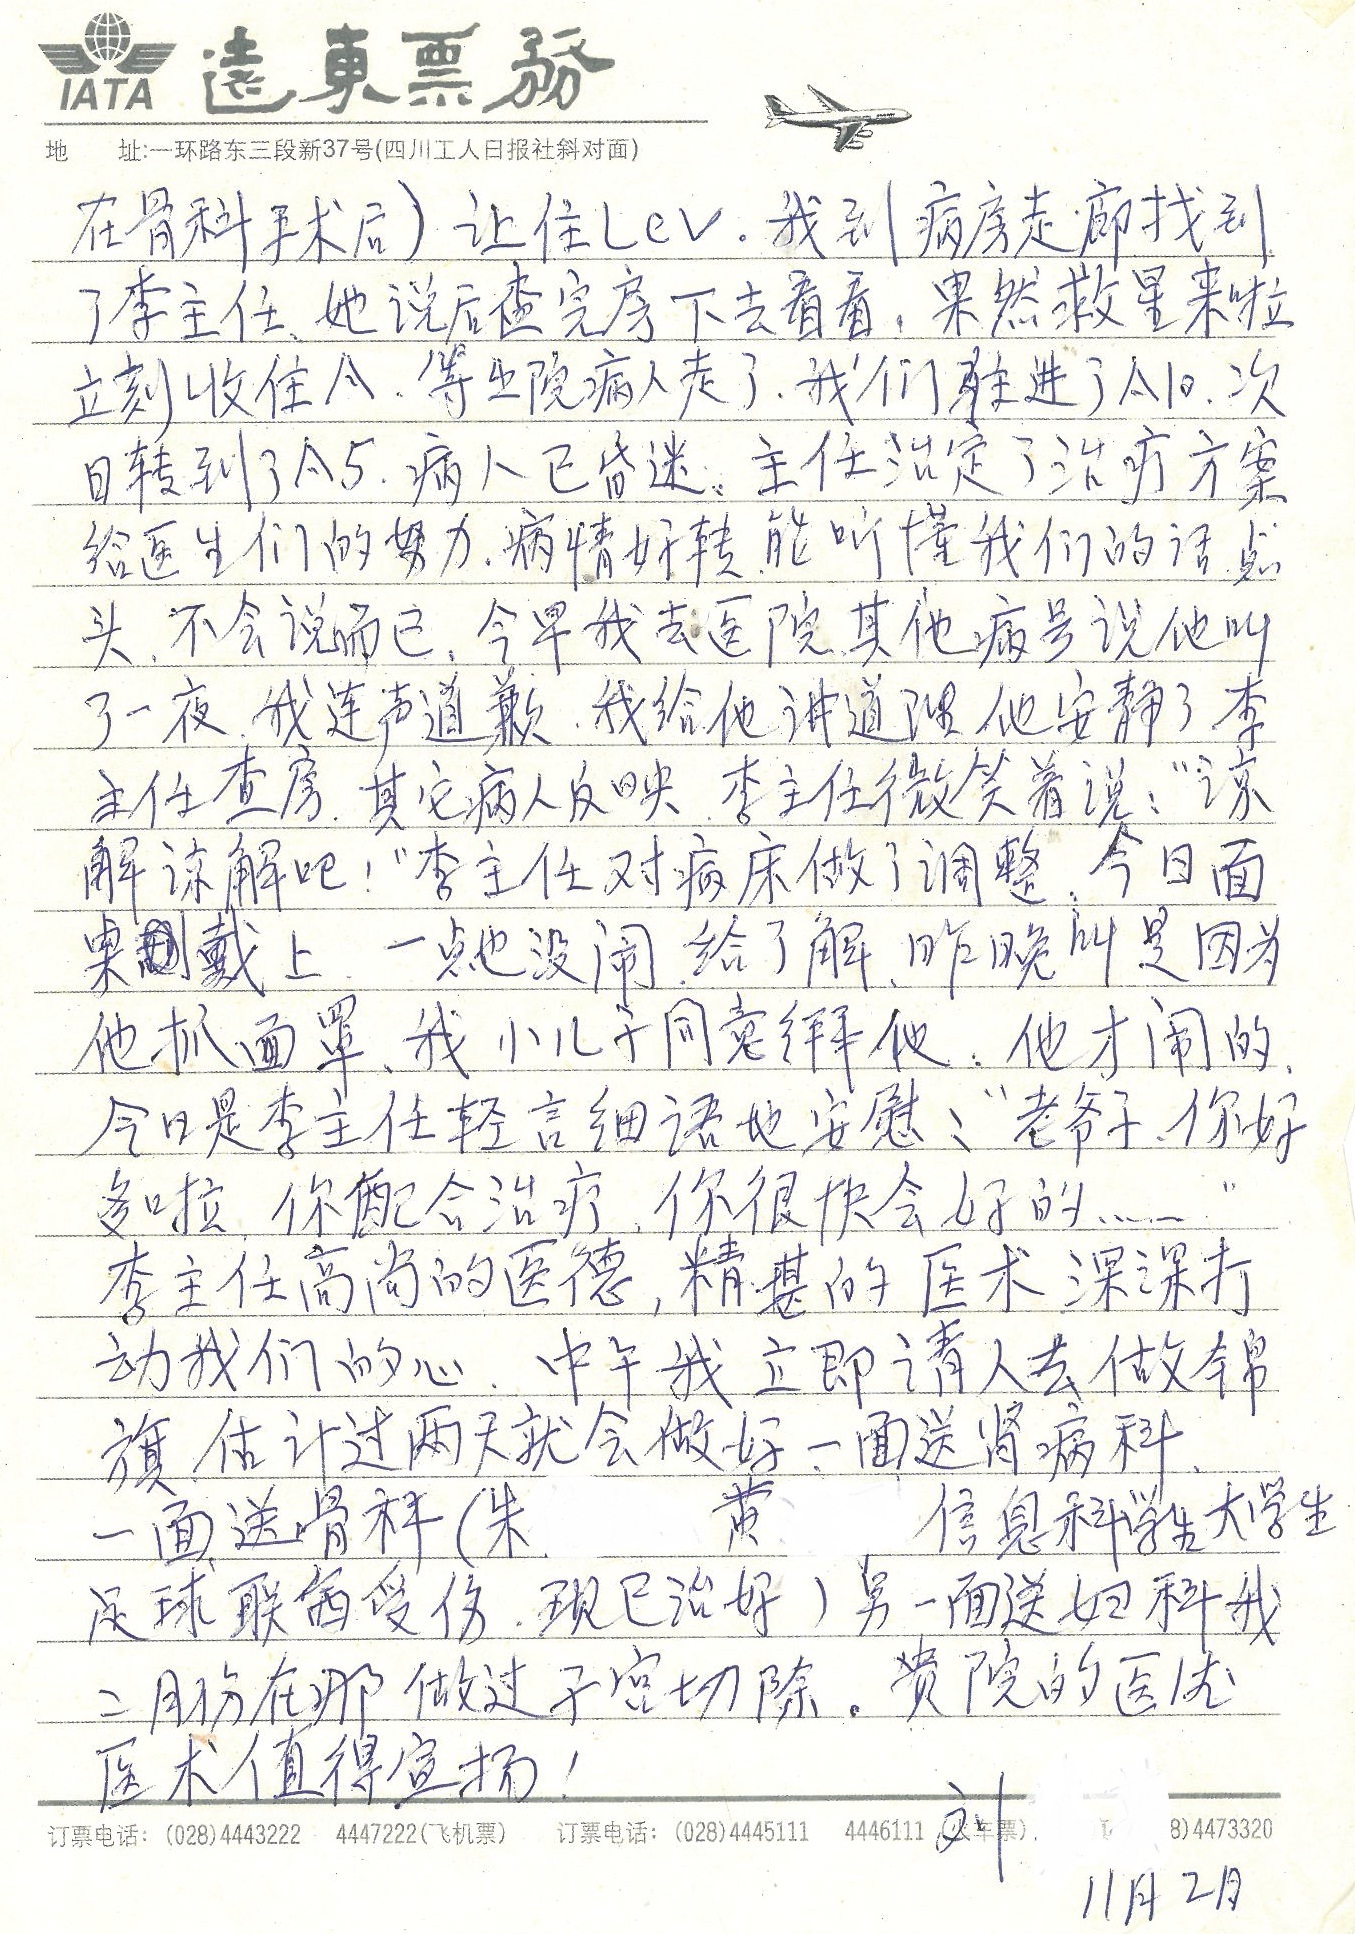 IATA 遠東票務
地 址:一环路东三段新37号(四川工人日报社斜对面)
在骨科手术后）让住LCV.我到病房走廊找到
了李主任、她说后查完房下去看看,果然救星来啦
立刻收住A.等出院病人走了.我们驻进了A10.次
日转到了A5.病人已昏迷。主任治定了治疗方案
给医生们的努力.病情好转能听懂我们的话点
头,不会说而已,今早我去医院其他病号说他叫
了一夜.我连声道歉.我给他讲道理他安静了李
主任查房.其它病人反映.李主任微笑着说:“谅
解谅解吧!”李主任对病床做了调整.今日面
果戴上.一点也没闹.给了解,昨晚叫是因为
他抓面罩、我小儿子同意绑他.他才闹的.
今日是李主任轻言细语地安慰:“老爷子、你好
多啦,你配合治疗,你很快会好的……”
李主任高尚的医德,精堪的医术深深打
动我们的心.中午我立即请人去做锦
旗.估计过两天就会做好.一面送肾病科.
一面送骨科(朱 黄 信息科学生大学生
足球联赛受伤.现已治好)另一面送妇科我
二月份在那做过子宫切除。贵院的医德
医术值得宣扬!
刘
订票电话: (028)4443222 4447222(飞机票) 订票电话: (028)4445111 4446111 (火车票). 8)4473320
11月2月